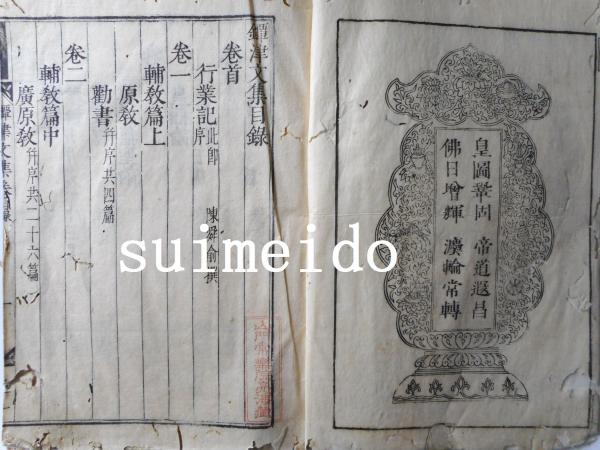 皇圖鞏固 帝道遐昌
佛日增輝 灋輪常轉
鐔津文集目錄
卷首
行業記此即序 陳舜俞撰
卷一
輔教篇上
原教
勸書并序共四篇
卷二
輔教篇中
廣原教并序共二十六篇
suimeido